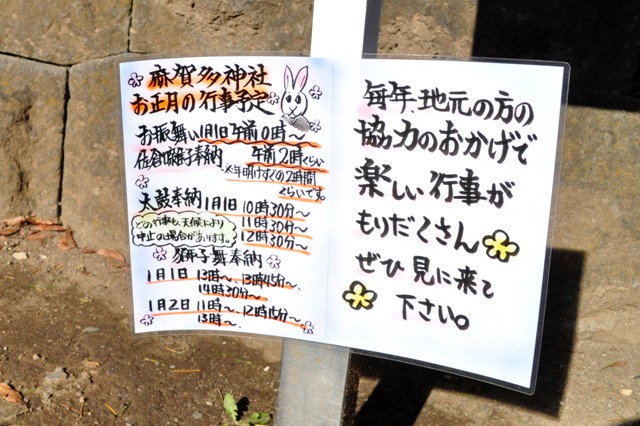 麻賀多神社
お正月の行事予定
お振舞い1月1日午前0時～
佐倉囃子奉納 午前2時くらい
※年明けすぐの2時間
くらいです。
太鼓奉納 1月1日 10時30分～
11時30分～
12時30分～
どの行事も、天候により
中止の場合があります。
獅子舞奉納
1月1日 13時～、13時45分～、
14時30分～
1月2日 11時～、12時15分～
13時～、
毎年、地元の方の
協力のおかげで
楽しい行事が
もりだくさん
ぜひ見に来て
下さい。